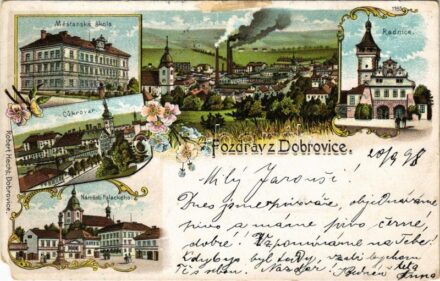 Měšťanská škola
1163
Radnice.
Cukrovar.
Pozdrav z Dobrovice.
Náměstí Palackého.
Robert Hecht, Dobrovice.
20/9 98
Milý Jarouši!
Dnes jsme
pivo a máme pivo černé,
dobré! Vzpomínáme na Tebe!
Kdyby byl tady, vzali bychom
Tě s sebou. Nazdar!
Anna